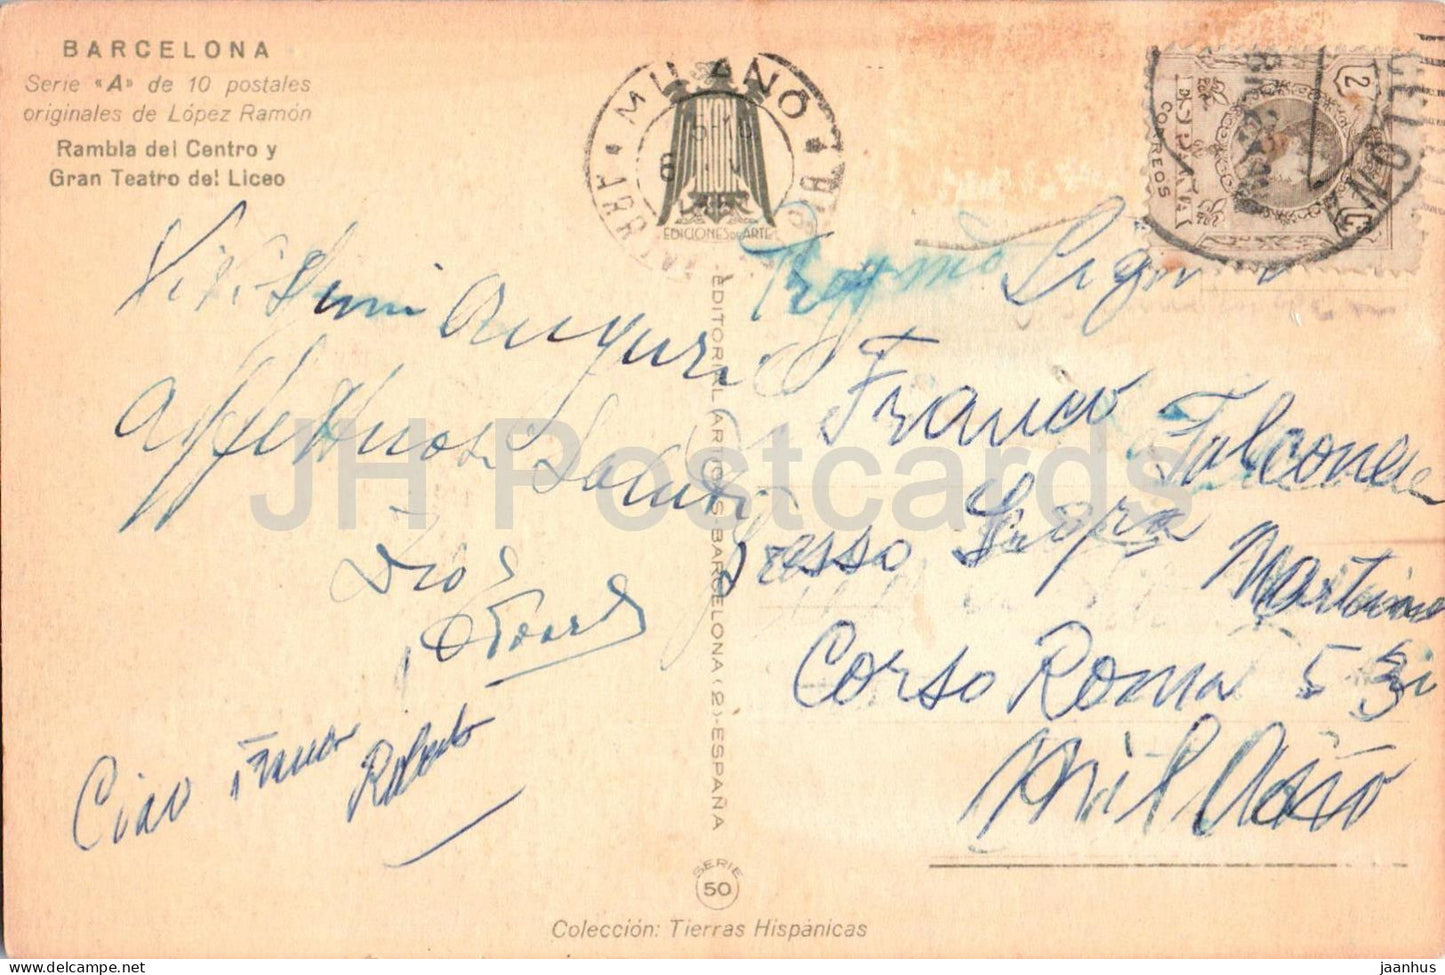 BARCELONA
Serie «A» de 10 postales
originales de López Ramón
Rambla del Centro y
Gran Teatro del Liceo
MILANO
EDICIONES DE ARTE
2
CORREOS
Vivissimi Auguri
Affettuosi Saluti
Ciao Franco
Roberto
Egregio Signor
Franco Falcone
Presso Martino
Corso Roma 5
Milano
EDITORIAL ARTIGAS-BARCELONA (2)-ESPAÑA
SERIE
50
Colección: Tierras Hispánicas
JH Postcards
jaanhus — https://www.jaanhus.com